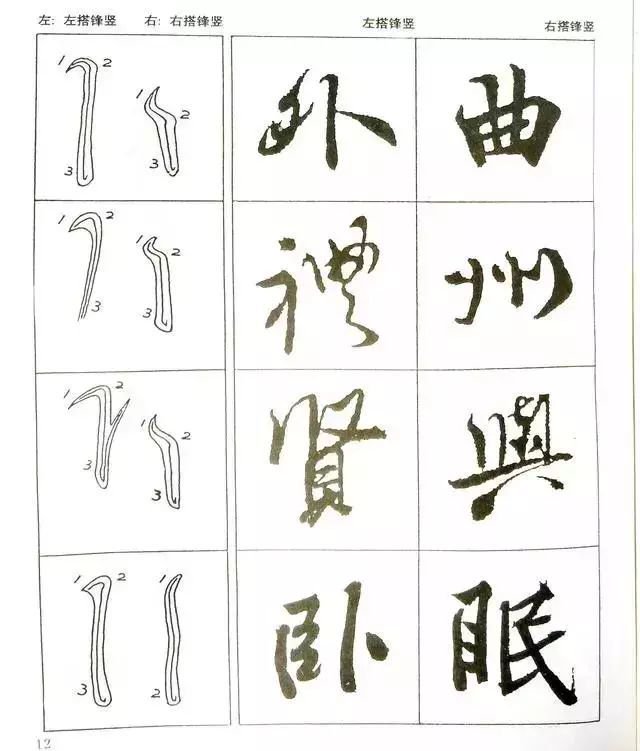 左: 左搭锋竖 右: 右搭锋竖 左搭锋竖 右搭锋竖
1 2 3 1 2 3 外 曲
1 2 3 1 2 3 禮 州
1 2 3 1 2 3 賢 與
1 2 3 1 2 臥 眠
12